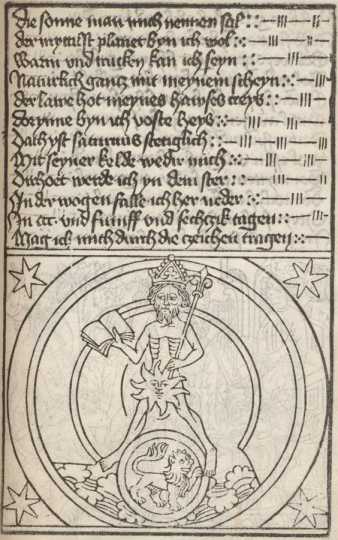 Die sonne man mich nennen sal
der myttilst planet byn ich wol
Warm und trucken kan ich seyn
Naturlich gantz mit meynem scheyn
Der lawe hot meynes hawses creys
Dorynne byn ich voste heys
Doch yst saturnus stetiglich
Mit seyner kelde wedir mich
Irhoet werde ich yn dem ster
In der wogen falle ich her neder
In ccc und funff und sechczik tagen
Mag ich mich durch die czeichen tragen